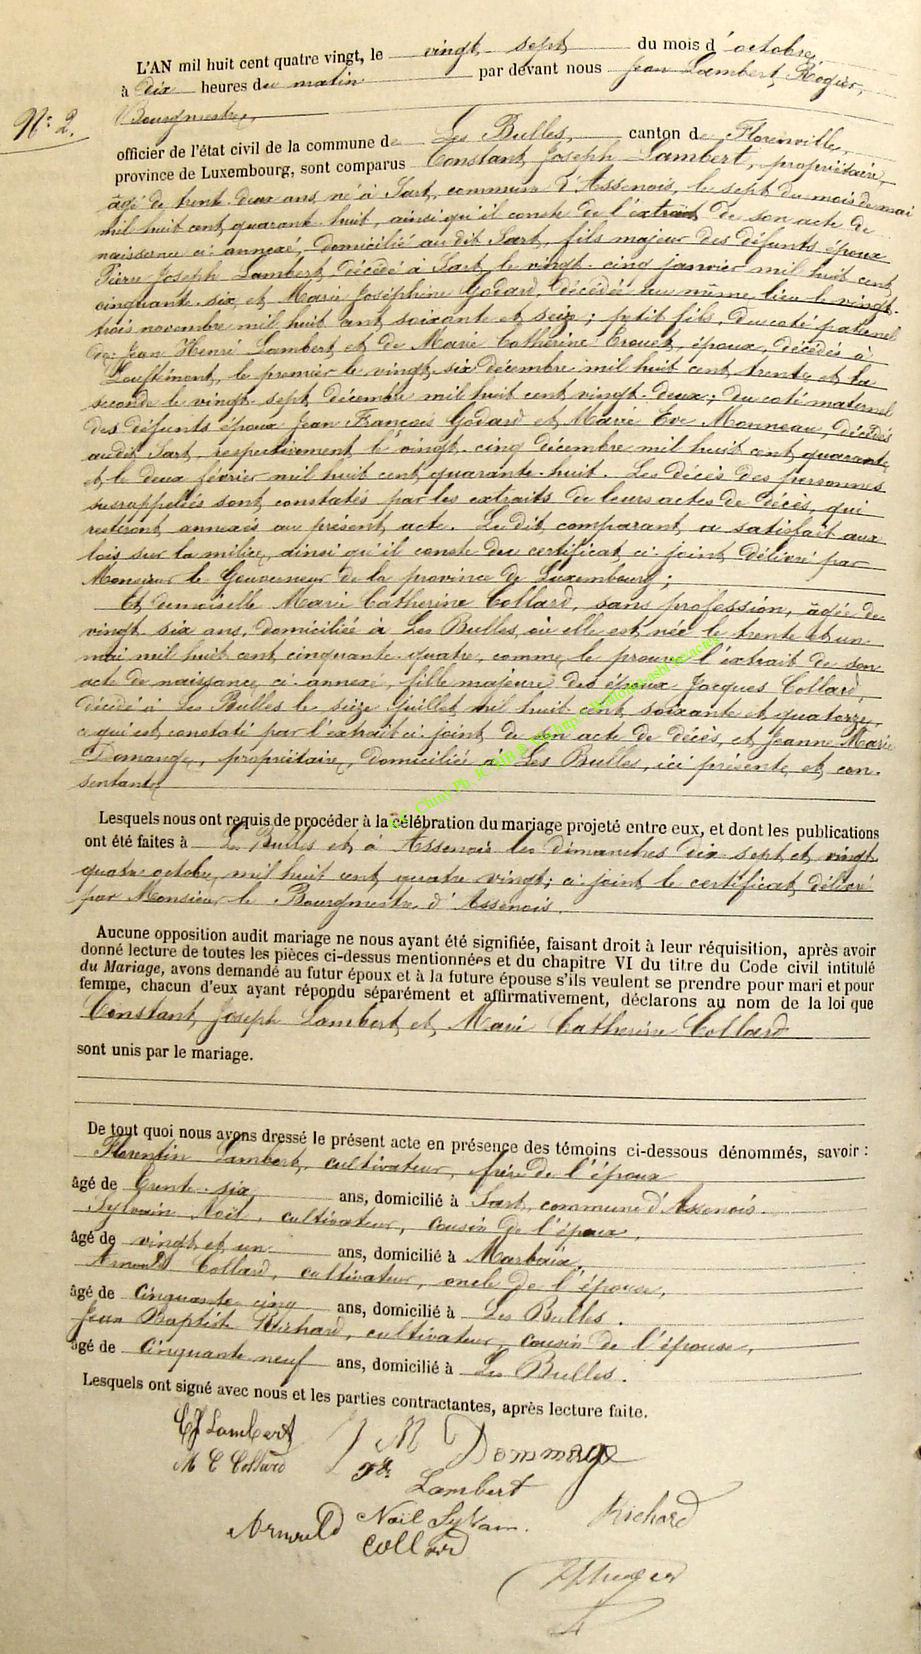 L'AN mil huit cent quatre vingt, le vingt sept du mois d'octobre,
à dix heures du matin par devant nous Jean Lambert Rogier,
Nº 2.
Bourgmestre,
officier de l'état civil de la commune de Les Bulles, canton de Florenville,
province de Luxembourg, sont comparus Constant Joseph Lambert, propriétaire,
âgé de trente deux ans, né à Sart, commune d'Assenois, le sept du mois de mai
mil huit cent quarante huit, ainsi qu'il conste de l'extrait de son acte de
naissance ci-annexé, domicilié au dit Sart, fils majeur des défunts époux
Pierre Joseph Lambert, décédé à Sart, le vingt-cinq janvier mil huit cent
cinquante-six, et Marie Joséphine Godard, décédée au même lieu le vingt-
trois novembre mil huit cent soixante et seize; petit fils, du coté paternel
de Jean Henri Lambert et de Marie Catherine Crouet, époux, décédés à
le premier le vingt-six décembre mil huit cent trente et la
seconde le vingt-sept décembre mil huit cent vingt-deux; du coté maternel
des défunts époux Jean François Godard et Marie Eve Monneau, décédés
audit Sart, respectivement le vingt-cinq décembre mil huit cent quarante
et le deux février mil huit cent quarante-huit. Les décès des personnes
susrappellées sont constatés par les extraits de leurs actes de décès, qui
resteront annexés au présent acte. Le dit comparant a satisfait aux
lois sur la milice, ainsi qu'il conste du certificat ci-joint délivré par
Monsieur le Gouverneur de la province de Luxembourg;
Et demoiselle Marie Catherine Collard, sans profession, âgée de
vingt-six ans, domiciliée à Les Bulles, où elle est née le trente et un
mai mil huit cent cinquante-quatre, comme le prouve l'extrait de son
acte de naissance ci-annexé, fille majeure des époux Jacques Collard
décédé à Les Bulles le seize Juillet mil huit cent soixante et quatorze,
ce qui est constaté par l'extrait ci-joint de son acte de décès, et Jeanne Marie
Domange, propriétaire, domiciliée à Les Bulles, ici présente et con-
sentante
Lesquels nous ont requis de procéder à la célébration du mariage projeté entre eux, et dont les publications
ont été faites à Les Bulles et à Assenois les dimanches dix-sept et vingt-
quatre octobre mil huit cent quatre vingt; ci-joint le certificat délivré
par Monsieur le Bourgmestre d'Assenois.
Aucune opposition audit mariage ne nous ayant été signifiée, faisant droit à leur réquisition, après avoir
donné lecture de toutes les pièces ci-dessus mentionnées et du chapitre VI du titre du Code civil intitulé
du Mariage, avons demandé au futur époux et à la future épouse s'ils veulent se prendre pour mari et pour
femme, chacun d'eux ayant répondu séparément et affirmativement, déclarons au nom de la loi que
Constant Joseph Lambert et Marie Catherine Collard
sont unis par le mariage.
De tout quoi nous avons dressé le présent acte en présence des témoins ci-dessous dénommés, savoir :
Florentin Lambert, cultivateur, frère de l'époux
âgé de trente-six ans, domicilié à Sart, commune d'Assenois.
Sylvain Noël, cultivateur, cousin de l'époux,
âgé de vingt et un ans, domicilié à Marbaix,
Arnould Collard, cultivateur, oncle de l'épouse,
âgé de cinquante cinq ans, domicilié à Les Bulles.
Jean Baptiste Richard, cultivateur, cousin de l'épouse,
âgé de cinquante neuf ans, domicilié à Les Bulles.
Lesquels ont signé avec nous et les parties contractantes, après lecture faite.
CJ Lambert J M Dommage
M C Collard
Lambert
Noël Sylvain. Richard
Arnould Collard